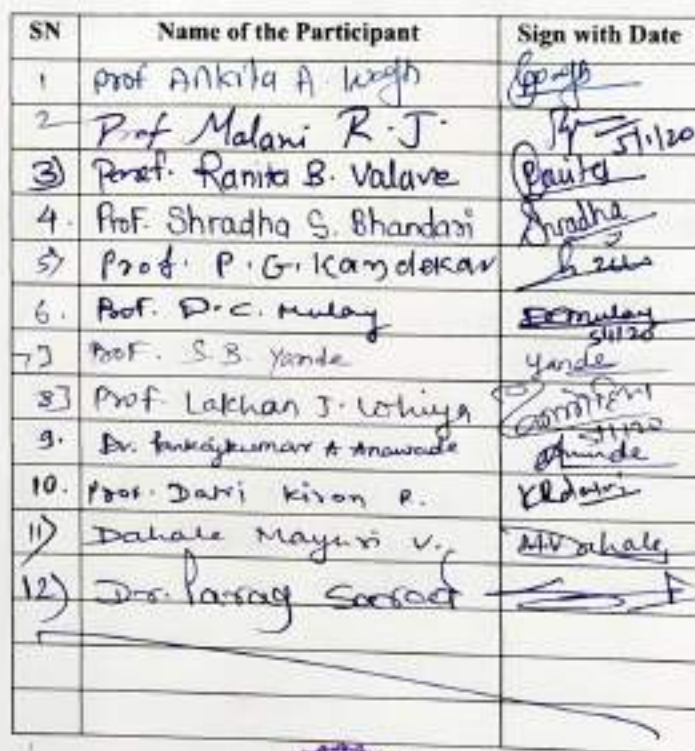 SN Name of the Participant Sign with Date
1 Prof Ankita A. Wagh
2 Prof Malani R. J. 5/1/20
3) Prof. Ranita B. Valave Ranita
4. Prof. Shradha S. Bhandari Shradha
5) Prof. P. G. Kandekar
6. Prof. D. C. Mulay DCMulay 5/1/20
7] Prof. S. B. Yande Yande
8] Prof. Lakhan J. Lohiya 5/1/20
9. Dr. Pankajkumar A Anawade
10. Prof. Darvi Kiron R.
11) Dahale Mayuri V. M.V Dahale
12) Dr. Parag